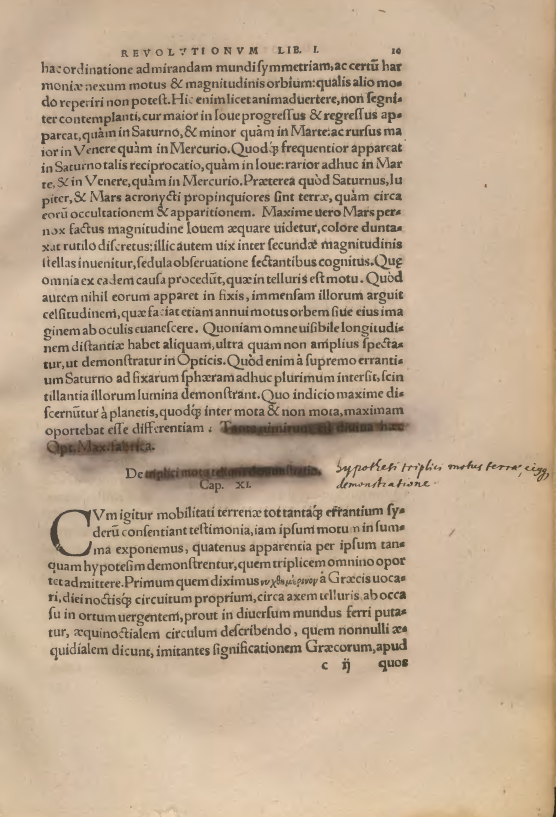 REVOLVTIONVM LIB. I. 10
hac ordinatione admirandam mundi symmetriam, ac certũ har
moniæ nexum motus & magnitudinis orbium: qualis alio mo⸗
do reperiri non potest. Hic enim licet animaduertere, non segni⸗
ter contemplanti, cur maior in Ioue progressus & regressus ap⸗
pareat, quàm in Saturno, & minor quàm in Marte: ac rursus ma
ior in Venere quàm in Mercurio. Quodq́ꝫ frequentior appareat
in Saturno talis reciprocatio, quàm in Ioue: rarior adhuc in Mar
te, & in Venere, quàm in Mercurio. Præterea quòd Saturnus, Iu
piter, & Mars acronycti propinquiores sint terræ, quàm circa
eorũ occultationem & apparitionem. Maxime uero Mars per⸗
nox factus magnitudine Iouem æquare uidetur, colore dunta⸗
xat rutilo discretus: illic autem uix inter secundæ magnitudinis
stellas inuenitur, sedula obseruatione sectantibus cognitus. Quę
omnia ex eadem causa procedũt, quæ in telluris est motu. Quòd
autem nihil eorum apparet in fixis, immensam illorum arguit
celsitudinem, quæ faciat etiam annui motus orbem siue eius ima
ginem ab oculis euanescere. Quoniam omne uisibile longitudi⸗
nem distantiæ habet aliquam, ultra quam non amplius specta⸗
tur, ut demonstratur in Opticis. Quòd enim à supremo erranti⸗
um Saturno ad fixarum sphæram adhuc plurimum intersit, scin
tillantia illorum lumina demonstrant. Quo indicio maxime di⸗
scernũtur à planetis, quodq́ꝫ inter mota & non mota, maximam
oportebat esse differentiam. Tanta nimirum est diuina hæc
Opt. Max. fabrica.
De triplici motu telluris demonstratio. hypothesi triplici motus terræ, eiusq
Cap. XI. demonstratione.
CVm igitur mobilitati terrenæ tot tantaq́ꝫ errantium sy⸗
derũ consentiant testimonia, iam ipsum motum in sum⸗
ma exponemus, quatenus apparentia per ipsum tan⸗
quam hypotesim demonstrentur, quem triplicem omnino opor
tet admittere. Primum quem diximus νυχθημέρινον à Græcis uoca⸗
ri, diei noctisq́ꝫ circuitum proprium, circa axem telluris, ab occa
su in ortum uergentem, prout in diuersum mundus ferri puta⸗
tur, æquinoctialem circulum describendo, quem nonnulli æ⸗
quidialem dicunt, imitantes significationem Græcorum, apud
c ij quos